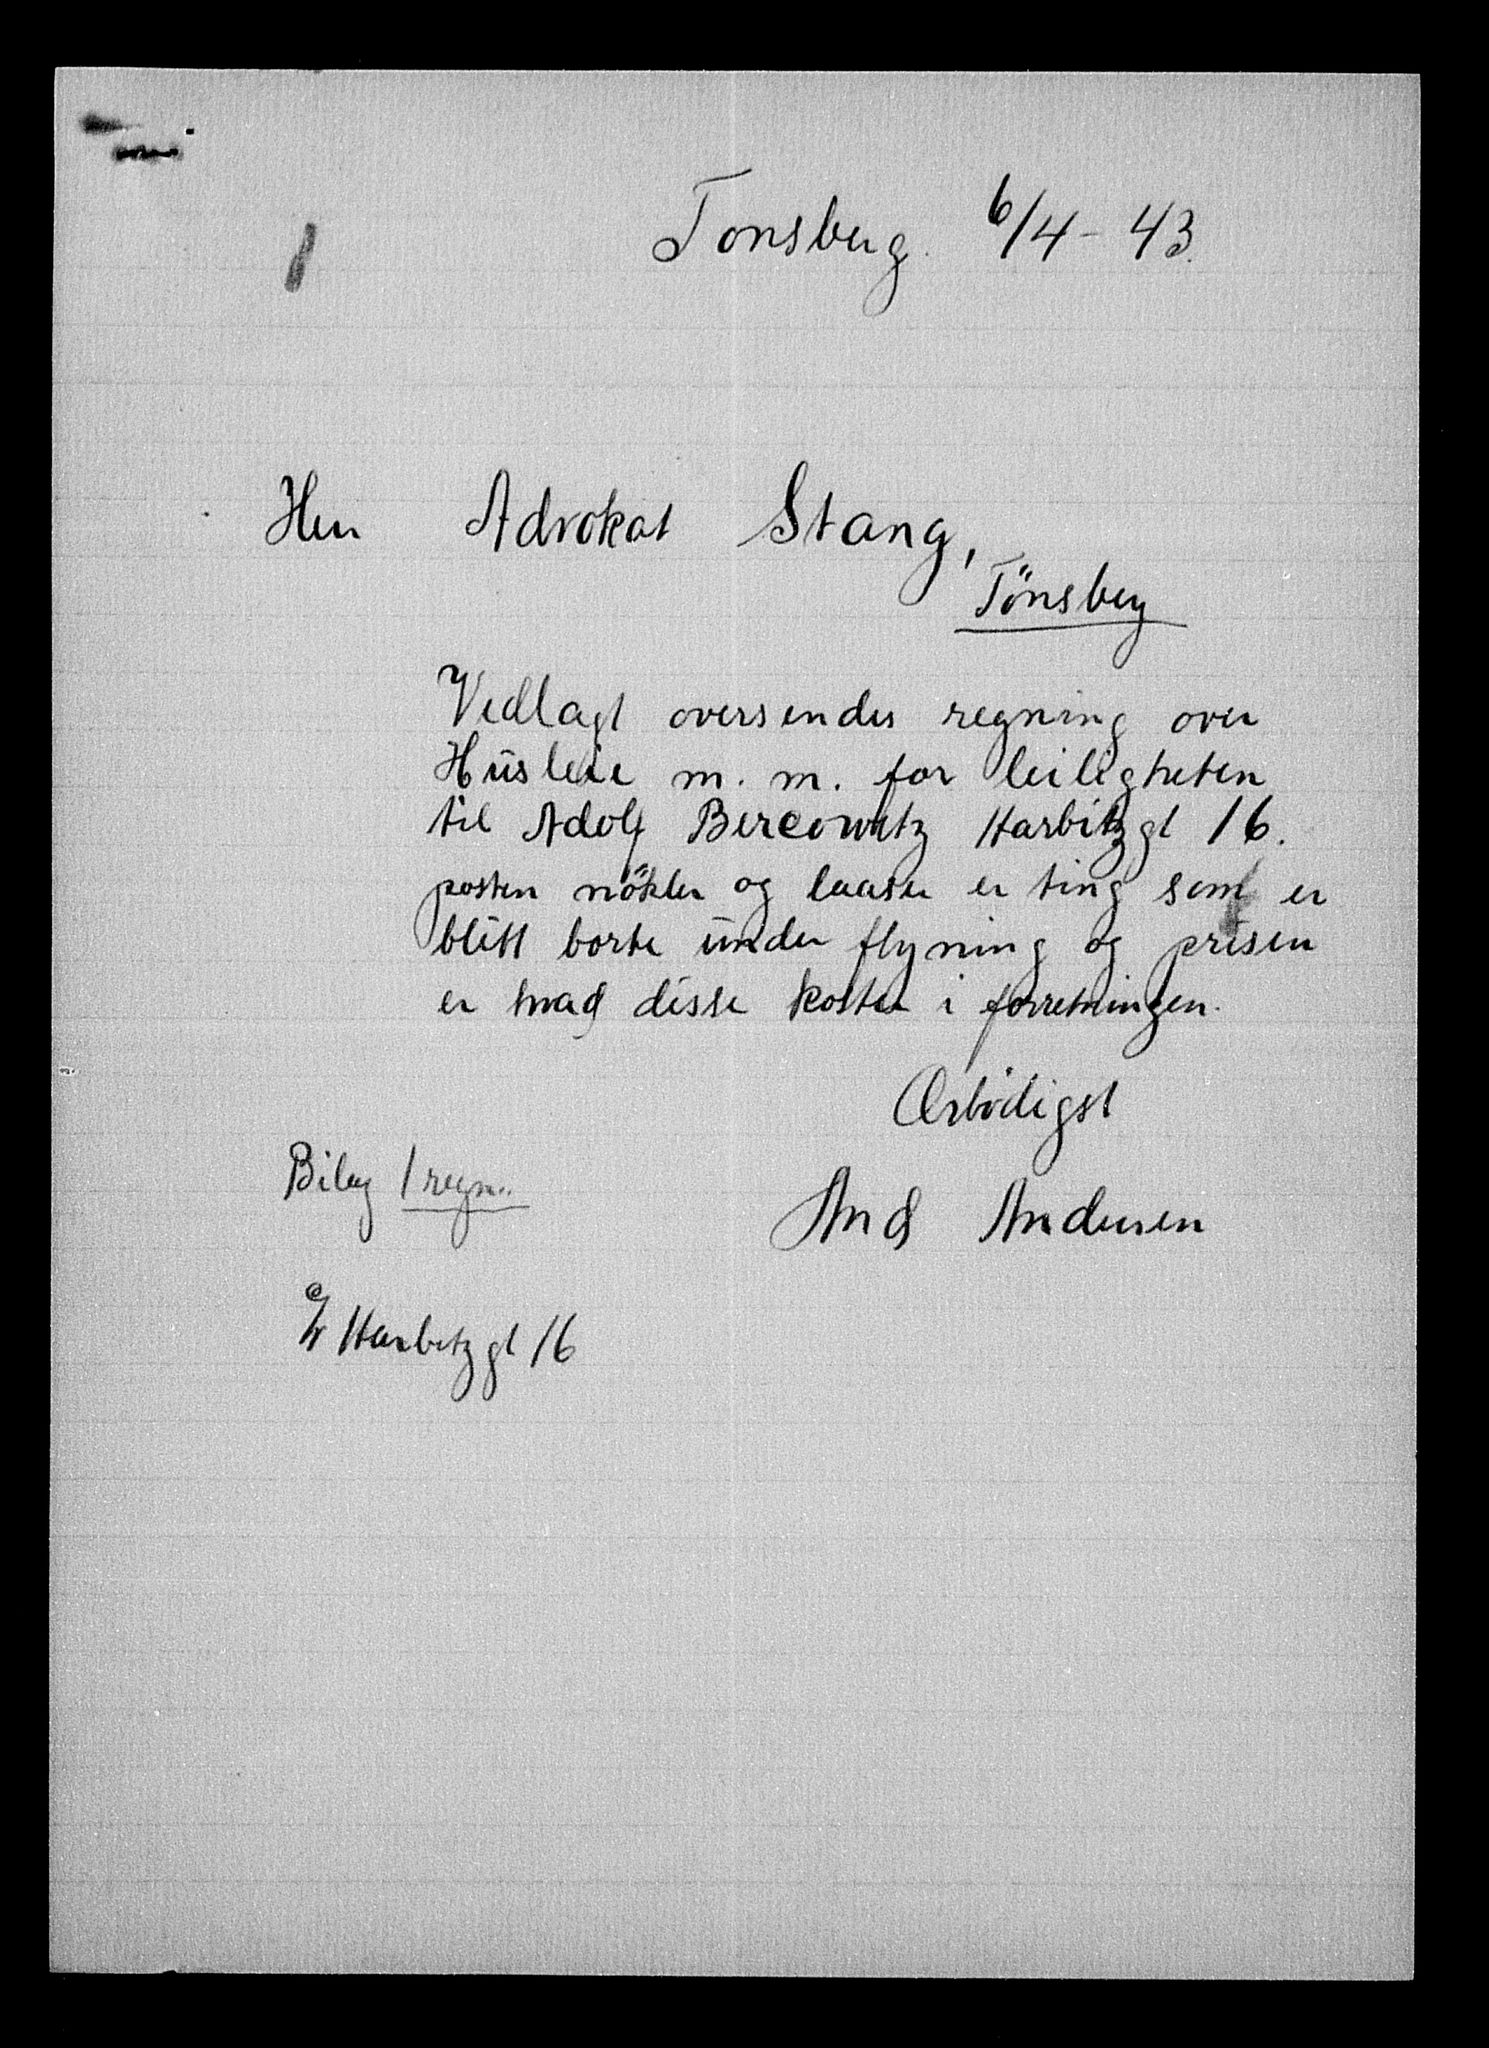 Tonsberg. 6/4 - 43.
Herr Advokat Stang,
Tönsberg
Vedlagt oversendes regning over
Husleie m. m. for leiligheten
til Adolf Bercowitz Harbitzgt 16.
posten nökler og laaser er ting som er
blitt borte under flyning og prisen
er hvad disse koster i forretningen.
Ærbödigst
Bilag 1 regn.
And Andersen
Harbitzgt 16